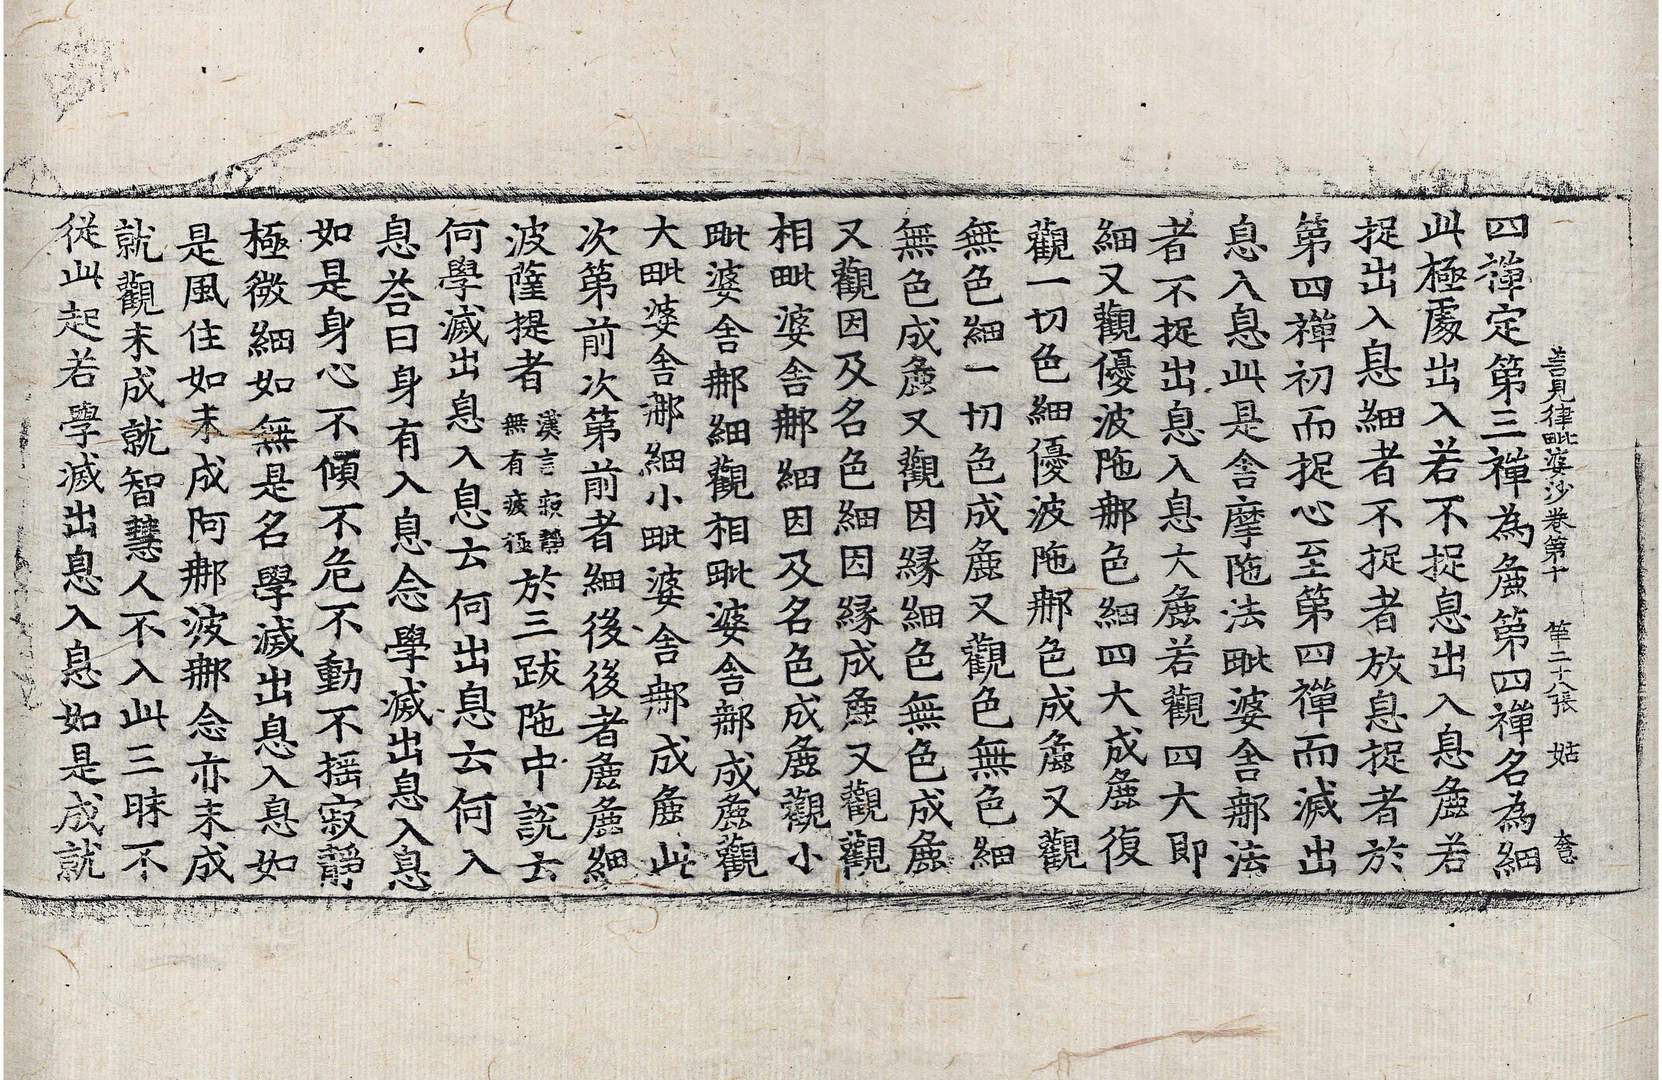 善見律毗婆沙卷第十 第二十八張 姑
四禪定第三禪為麁第四禪名為細
此極處出入若不捉息出入息麁若
捉出入息細者不捉者放息捉者於
第四禪初而捉心至第四禪而滅出
息入息此是舍摩陁法毗婆舍那法
者不捉出息入息大麁若觀四大即
細又觀優波陁那色細四大成麁復
觀一切色細優波陁那色成麁又觀
無色細一切色成麁又觀色無色細
無色成麁又觀因緣細色無色成麁
又觀因及名色細因緣成麁又觀觀
相毗婆舍那細因及名色成麁觀小
毗婆舍那細觀相毗婆舍那成麁觀
大毗婆舍那細小毗婆舍那成麁此
次第前次第前者細後後者麁麁細
波薩提者漢言寂靜無有疲極於三跋陁中說云
何學滅出息入息云何出息云何入
息荅曰身有入息念學滅出息入息
如是身心不傾不危不動不搖寂靜
極微細如無是名學滅出息入息如
是風住如未成阿那波那念亦未成
就觀未成就智慧人不入此三昧不
從此起若學滅出息入息如是成就